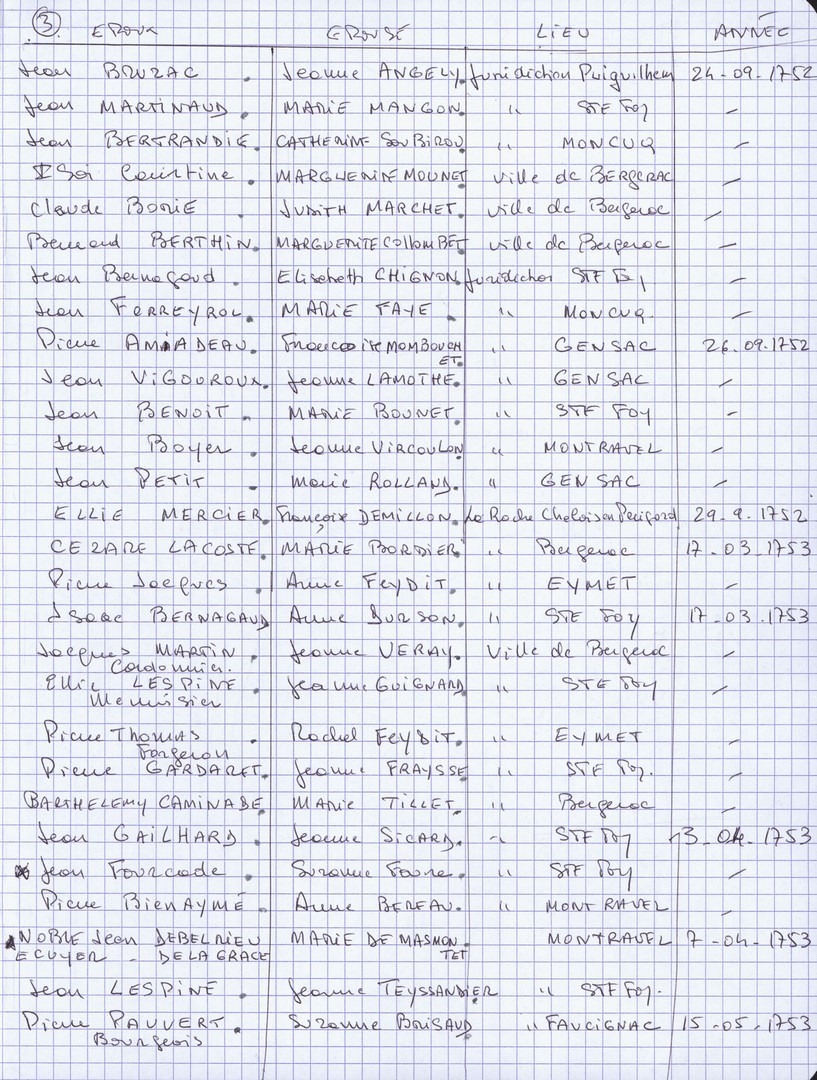 3 EPOUX EPOUSÉ LIEU ANNÉE
Jean BRUZAC. Jeanne ANGELY. Juridiction Puiguilhem 24-09-1752
Jean MARTINAUD. MARIE MANGON. " STE Foy –
Jean BERTRANDIE. CATHERINE SouBirou " MONCUQ –
Courtine. MARGUERITE MOUNET ville de BERGERAC –
Claude BORIE. JUDITH MARCHET. ville de Bergerac –
Bernard BERTHIN. MARGUERITE COLLOMBET ville de Bergerac –
Jean Bernagaud. Elisabeth CHIGNON. Juridiction STE Foy –
Jean FERREYROL. MARIE FAYE. " MONCUQ. –
Pierre AMADEAU. Francoise MOMBOUCH " GENSAC 26.09.1752
ET.
Jean ViGOUROUX. Jeanne LAMOTHE. " GENSAC –
Jean BENOIT. MARIE BOUNET. " STE FOY –
Jean Boyer. Jeanne VIRCOULON " MONTRAVEL –
Jean PETIT. Marie ROLLAND. " GENSAC –
ELLIE MERCIER. Françoise DEMILLON. La Roche Chalais en Perigord 29.9.1752
CEZARE LACOSTE. MARIE BORDIER. " Bergerac 17-03-1753
Pierre Jacques. Anne FEYDIT. " EYMET –
Isaac BERNAGAUD Anne DURSON. " STE Foy 17-03.1753
Jacques MARTIN. Jeanne VERAY. Ville de Bergerac –
Cordonnier.
Ellie LESPINE. Jeanne GUIGNARD " STE Foy –
Menuisier
Pierre Thomas. Rachel FEYDIT. " EYMET –
Forgeron
Pierre GARDARET. Jeanne FRAYSSE " STE Foy. –
BARTHELEMY CAMINADE. MARIE TILLET. " Bergerac –
Jean GAILHARD. Jeanne SICARD. " STE Foy 3-04-1753
Jean Fourcade. Suzanne Faure. " STE Foy –
Pierre BienAYMÉ. Anne BEREAU. " MONTRAVEL –
NOBLE Jean DEBELRIEU MARIE DE MASMON. MONTRAVEL 7-04-1753
ECUYER - DE LA GRACE TET
Jean LESPINE. Jeanne TEYSSANDIER " STE Foy.
Pierre PAUVERT. Suzanne BRISAUD " FAUCIGNAC 15-05-1753
Bourgeois